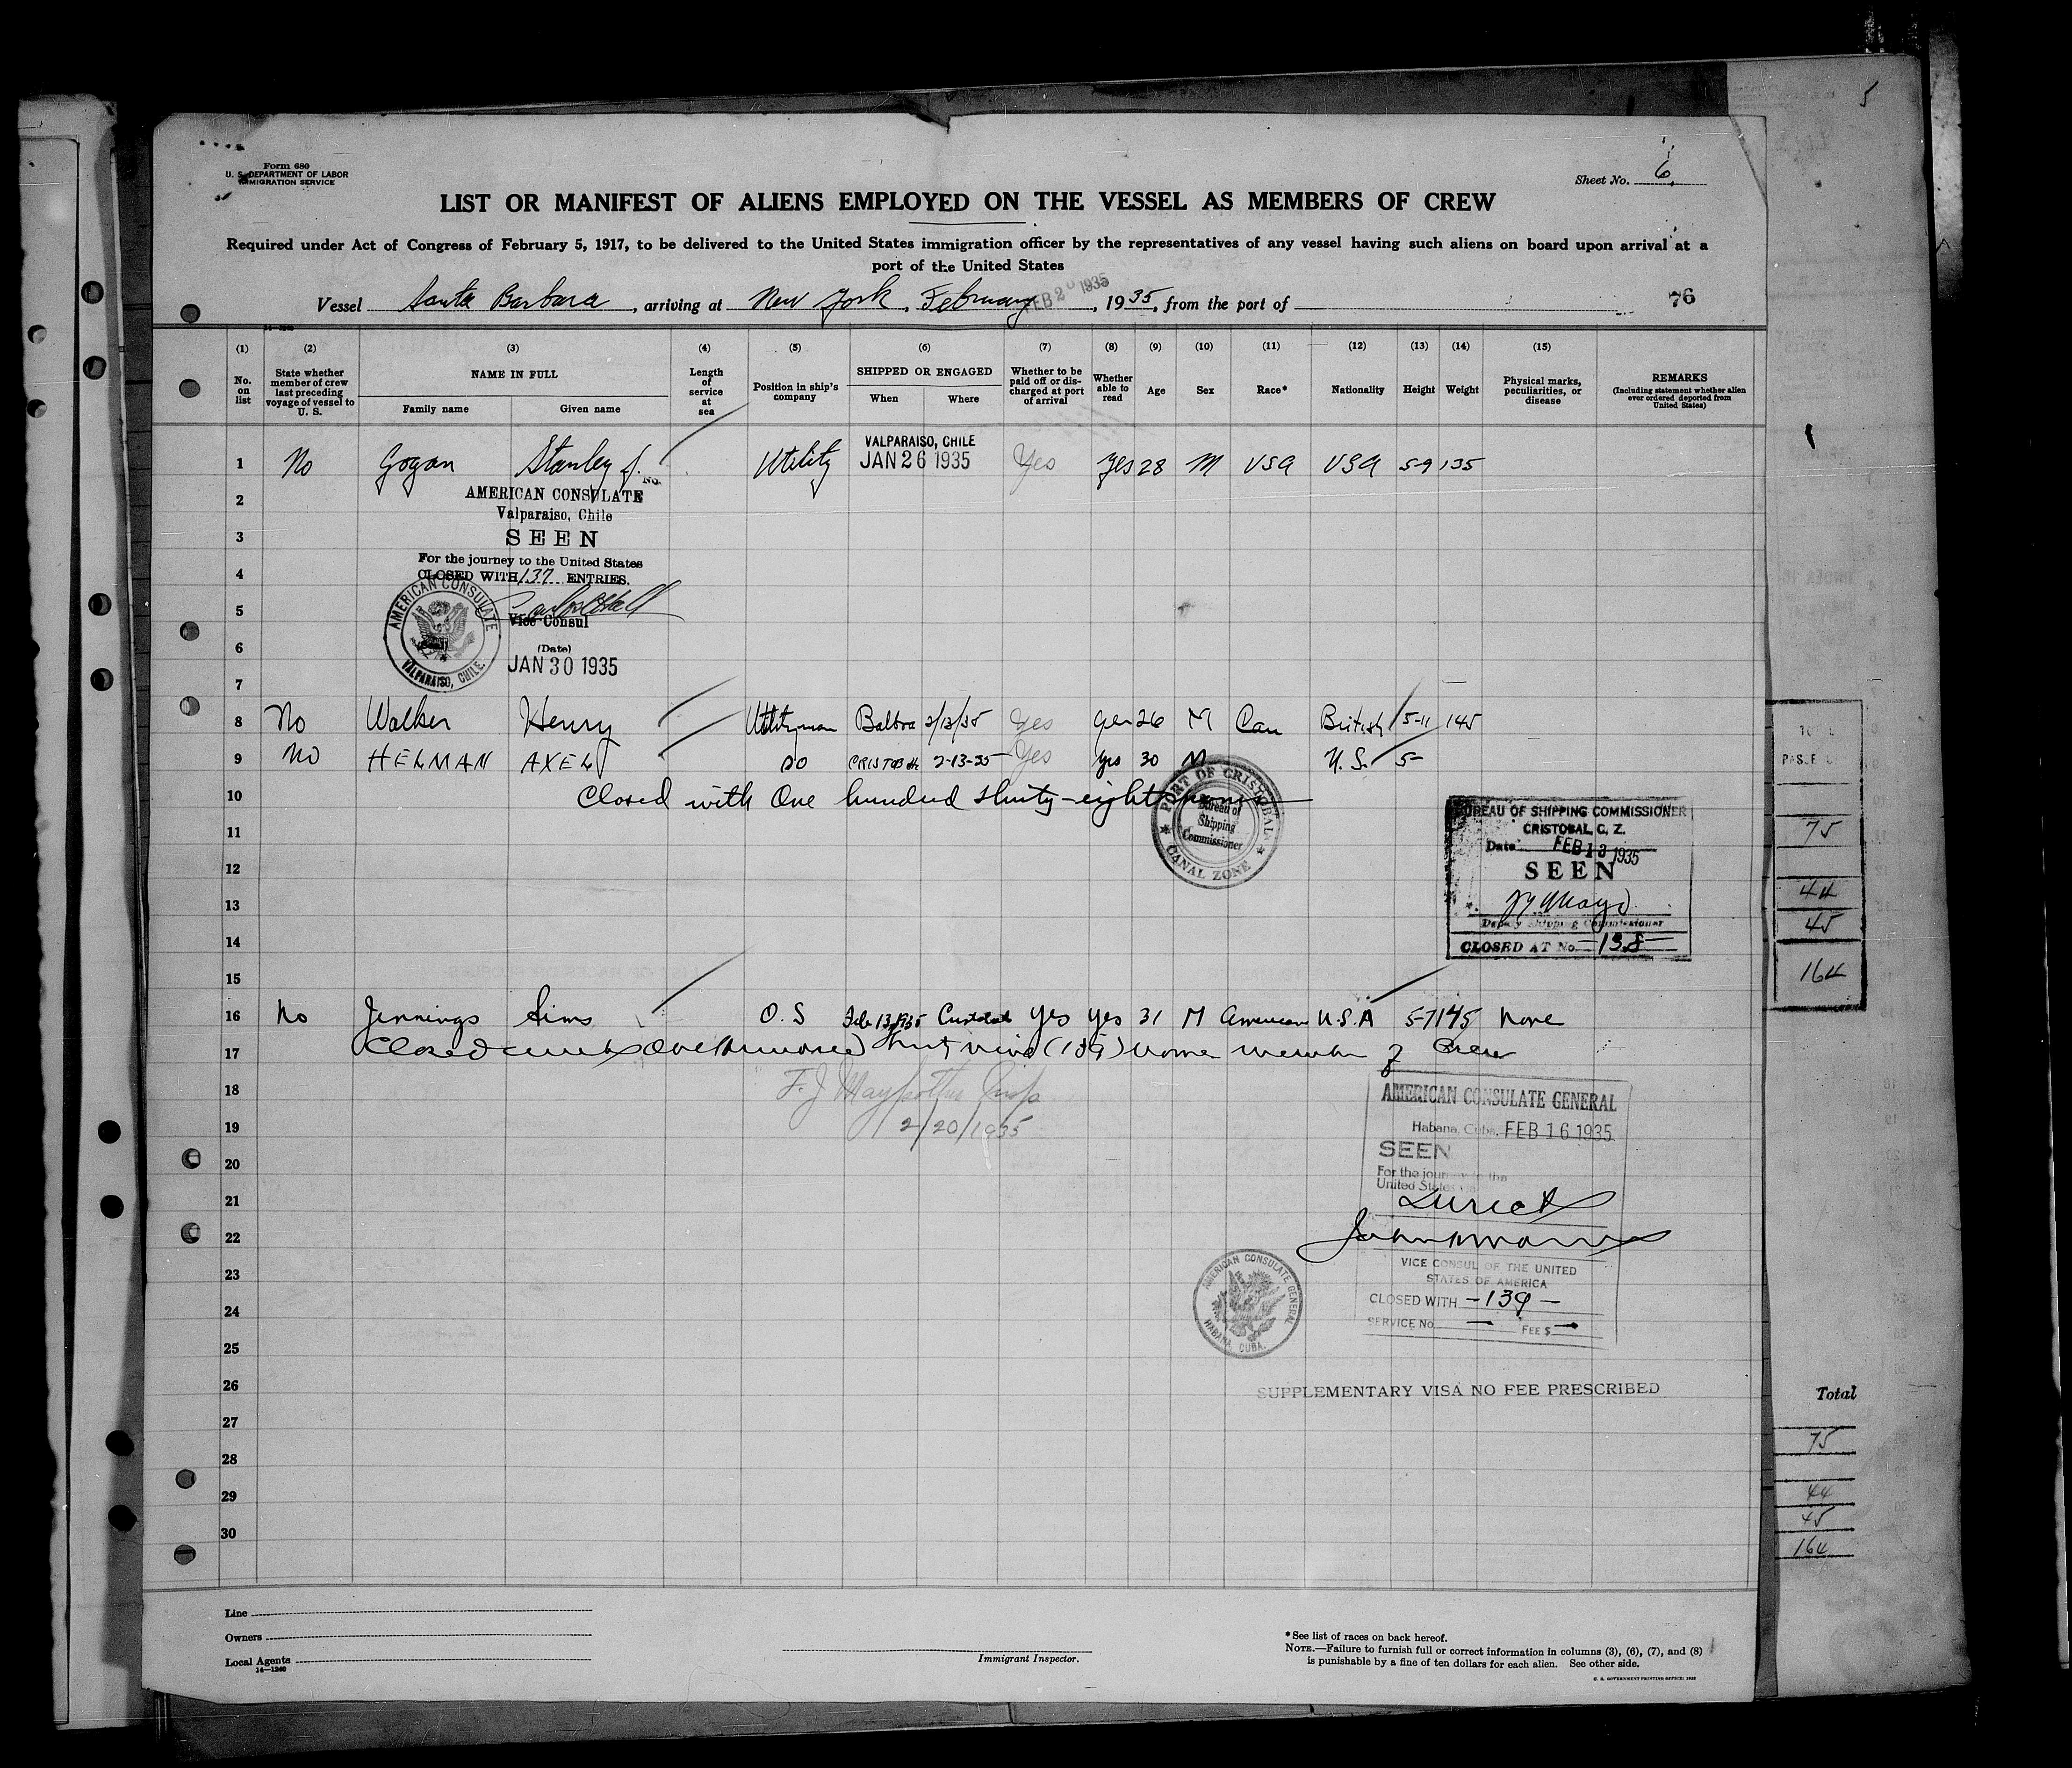 5
Form 680
U. S. DEPARTMENT OF LABOR
IMMIGRATION SERVICE
Sheet No. 6
LIST OR MANIFEST OF ALIENS EMPLOYED ON THE VESSEL AS MEMBERS OF CREW
Required under Act of Congress of February 5, 1917, to be delivered to the United States immigration officer by the representatives of any vessel having such aliens on board upon arrival at a
port of the United States
Vessel Santa Barbara, arriving at New York, February FEB 20 1935, 1935, from the port of
76
14—1240
(1) (2) (3) (4) (5) (6) (7) (8) (9) (10) (11) (12) (13) (14) (15)
No. on list
State whether member of crew last preceding voyage of vessel to U. S.
NAME IN FULL
Family name Given name
Length of service at sea
Position in ship's company
SHIPPED OR ENGAGED
When Where
Whether to be paid off or discharged at port of arrival
Whether able to read
Age
Sex
Race*
Nationality
Height
Weight
Physical marks, peculiarities, or disease
REMARKS
(Including statement whether alien ever ordered deported from United States)
VALPARAISO, CHILE
1 No Gogan Stanley J. Utility JAN 26 1935 Yes Yes 28 M USA USA 5-9 135
No.
2 AMERICAN CONSULATE
Valparaiso, Chile
3 SEEN
For the journey to the United States
4 CLOSED WITH 137 ENTRIES.
5
Vice Consul
6 (Date)
JAN 30 1935
AMERICAN CONSULATE VALPARAISO, CHILE.
(Seal)
7
8 No Walker Henry Utilityman Balboa 2/13/35 Yes Yes 26 M Can British 5-11 145
9 No HELMAN AXEL do CRISTOBAL 2-13-35 Yes Yes 30 M U.S. 5-
10 Closed with One hundred thirty-eight
PORT OF CRISTOBAL CANAL ZONE
Bureau of Shipping Commissioner
BUREAU OF SHIPPING COMMISSIONER
CRISTOBAL, C. Z.
Date FEB 13 1935
SEEN
Deputy Shipping Commissioner
CLOSED AT No. 138
11
12
13
14
15
16 No Jennings Sims O.S Feb 13, 1935 Cristobal Yes Yes 31 M American U.S.A 5-7 145 None
17 Closed with One Hundred thirty nine (139) members of Crew
18
19 2/20/1935
AMERICAN CONSULATE GENERAL
Habana, Cuba, FEB 16 1935
20 SEEN
For the journey to the
United States via
21 Direct
22
23 VICE CONSUL OF THE UNITED
STATES OF AMERICA
24 CLOSED WITH -139-
SERVICE No. — FEE $ —
AMERICAN CONSULATE GENERAL HABANA, CUBA.
25
26 SUPPLEMENTARY VISA NO FEE PRESCRIBED
27
28
29
30
Line
Owners
Local Agents
14—1240
Immigrant Inspector.
*See list of races on back hereof.
NOTE.—Failure to furnish full or correct information in columns (3), (6), (7), and (8)
is punishable by a fine of ten dollars for each alien. See other side.
U. S. GOVERNMENT PRINTING OFFICE: 1932
75
44
45
164
Total
75
44
45
164